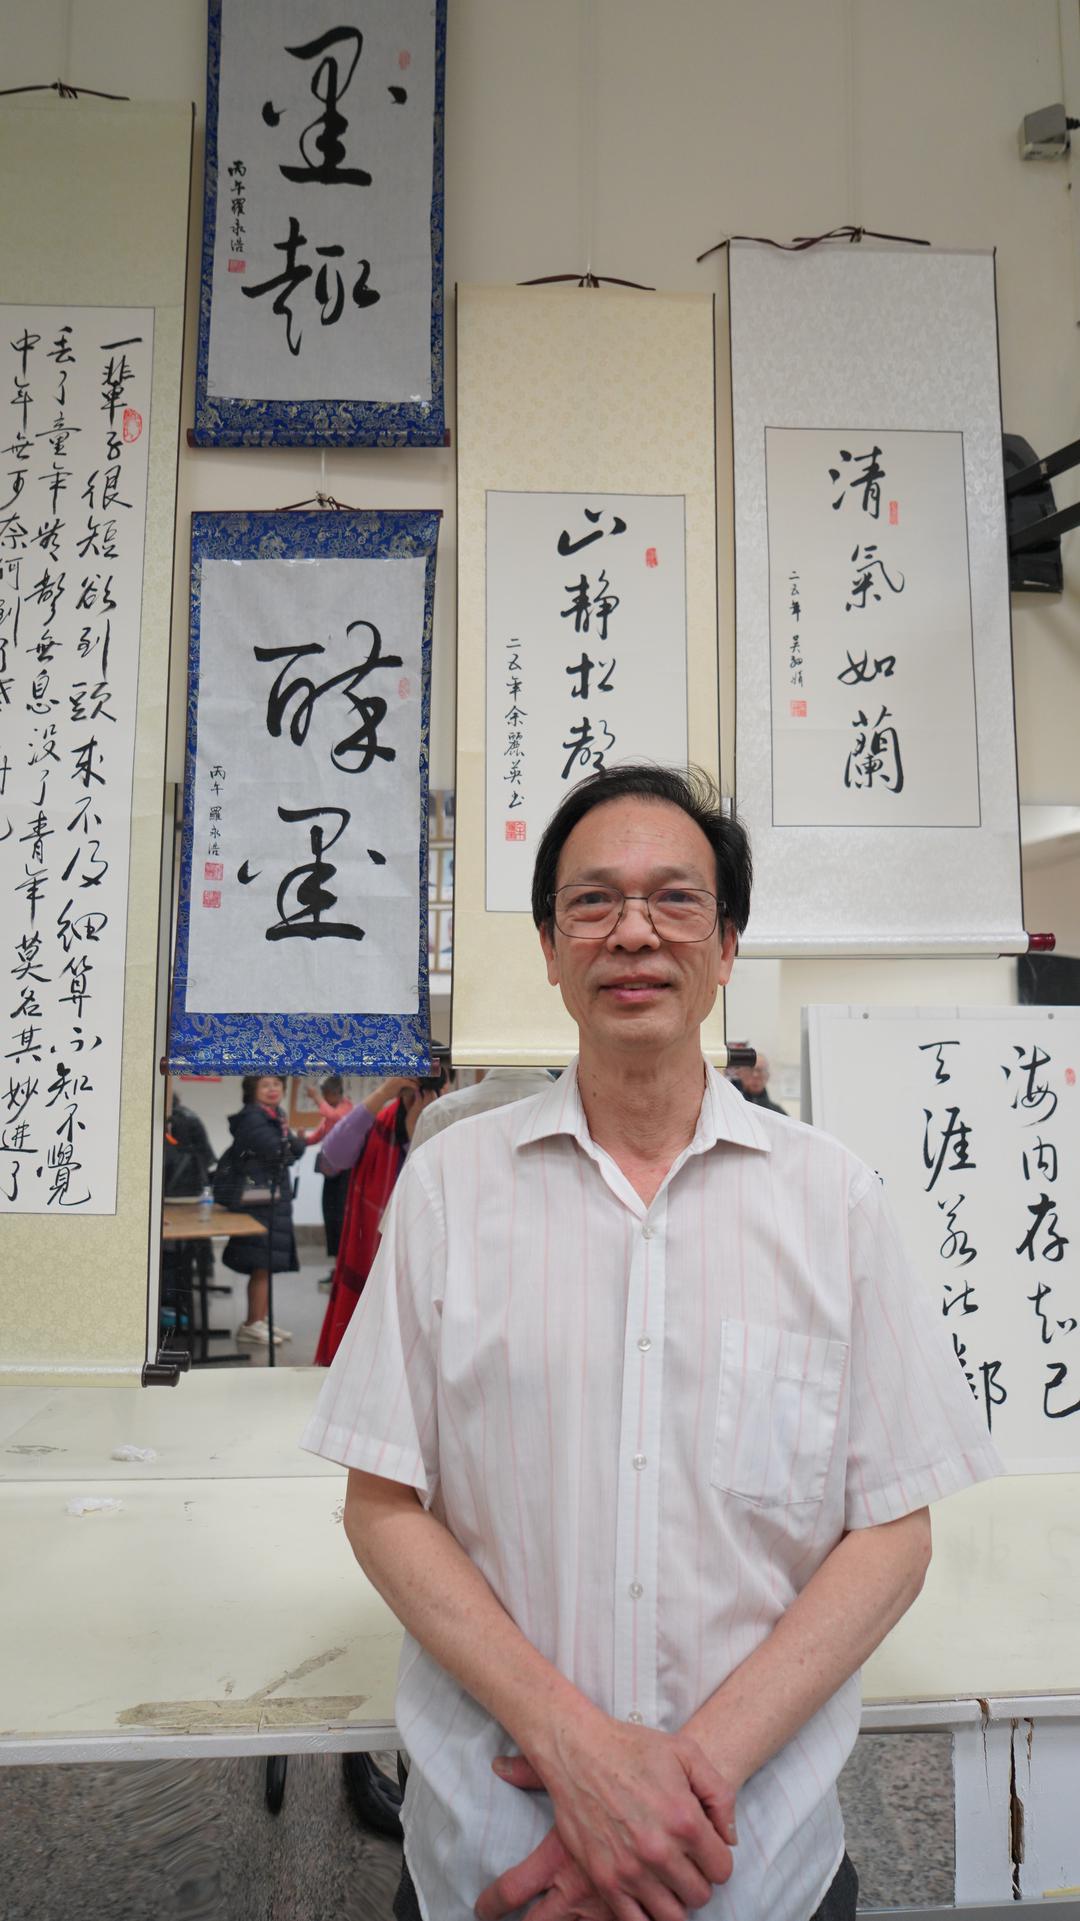 海内存知己
天涯若比
清氣如蘭
二五年 吴
山静松聲
二五年余麗英书
墨趣
丙午羅永浩
醉墨
丙午羅永浩
一輩子很短欲到頭來不及細算不知不覺
丢了童年聲無息没了青年莫名其妙進了
中年無可奈何到了